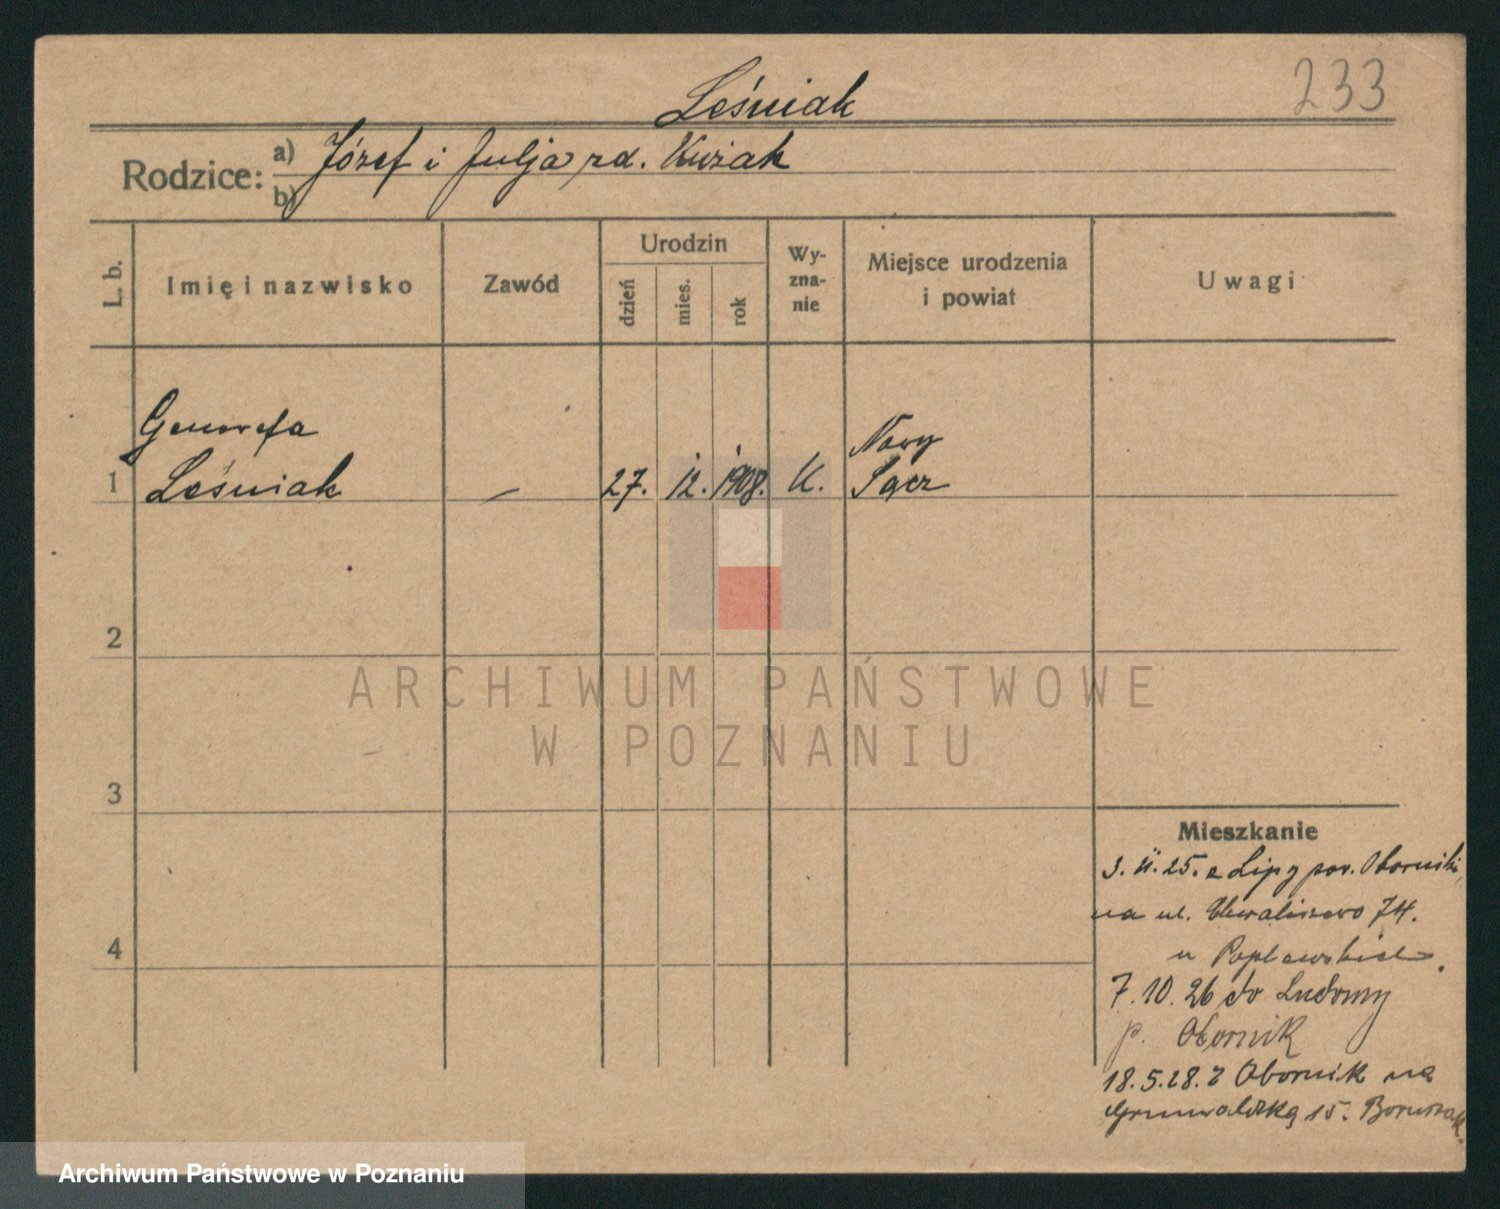 233
Leśniak
Rodzice: a) Józef i Julja rd. Kużak
b)
L. b.
Imię i nazwisko
Zawód
Urodzin
dzień
mies.
rok
Wy-
zna-
nie
Miejsce urodzenia
i powiat
Uwagi
Genowefa
Nowy
1 Leśniak — 27. 12. 1908. K. Sącz
2
ARCHIWUM PAŃSTWOWE
W POZNANIU
3
4
Mieszkanie
3. II. 25. z Lipy pow. Oborniki
na ul. Chwaliszewo 74.
u
7. 10. 26 do Ludomy
p. Obornik
18. 5. 28. z Obornik na
Grunwaldzką 15.
Archiwum Państwowe w Poznaniu